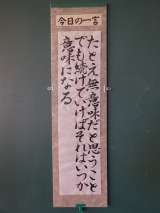 今日の一言
たとえ無意味だと思うこと
でも続けていけばそれはいつか
意味になる